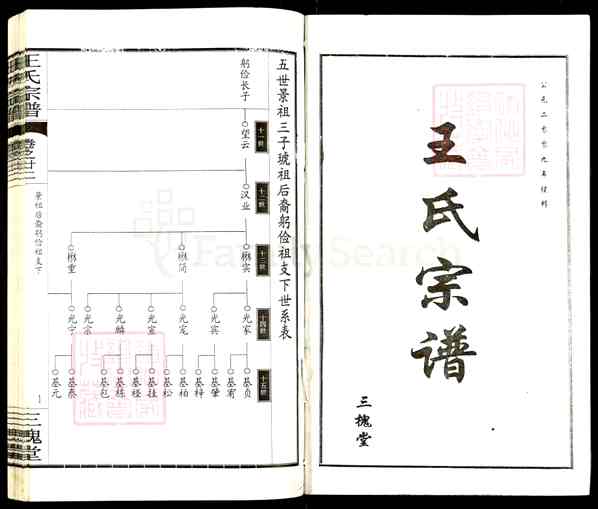 公元二零零九年续刊
王氏宗谱
三槐堂
五世景祖三子琥祖后裔躬俭祖支下世系表
躬俭长子
十一世
望云
十二世
汉业
十三世
楙实
楙简
楙重
十四世
光家
光宾
光宠
光宣
光麟
光宗
光宁
十五世
基贞
基宥
基肇
基梓
基柏
基松
基桂
基栋
基包
基泰
基元
王氏宗谱
卷之廿二
景祖后裔躬俭祖支下
1
三槐堂
Family Search